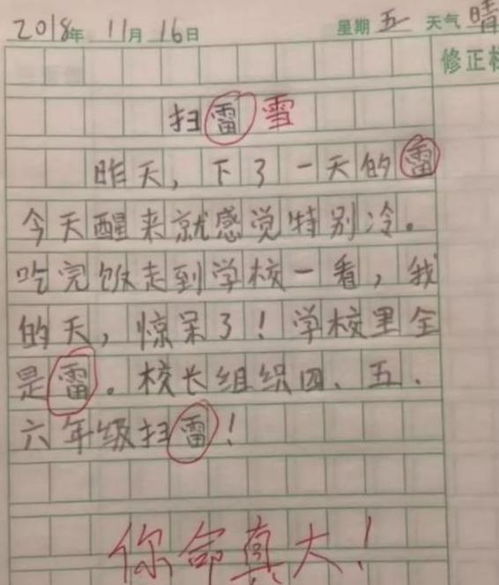 2018年 11月 16日 星期五 天气晴
修正
扫雷 雪
昨天，下了一天的雷
今天醒来就感觉特别冷。
吃完饭走到学校一看，我
的天，惊呆了！学校里全
是雷。校长组织四、五、
六年级扫雷！
你命真大！